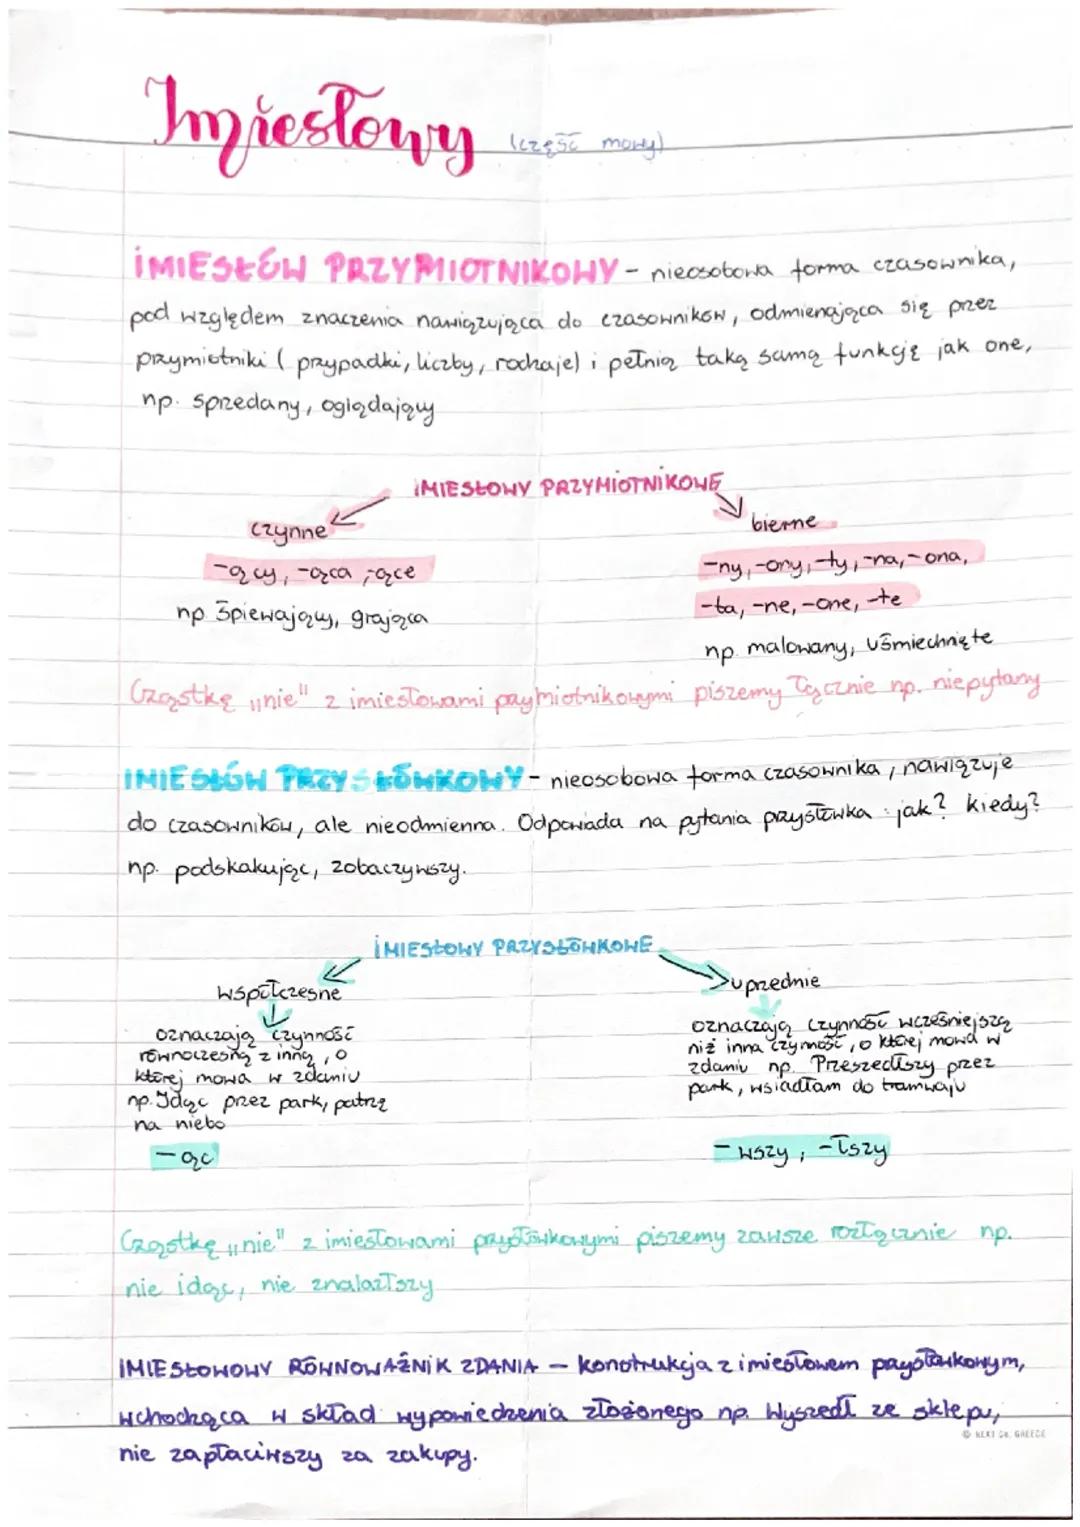 Imiesłowy (część mowy)
IMIESŁÓW PRZYMIOTNIKOWY - nieosobowa forma czasownika,
pod względem znaczenia nawiązująca do czasowników, odmieniająca się przez
przymiotniki (przypadki, liczby, rodzaje) i pełnią taką samą funkcję jak one,
np. sprzedany, oglądający
IMIESŁOWY PRZYMIOTNIKOWE
czynne
-ący, -ąca, -ące
np. śpiewający, grająca
bierne
-ny, -ony, -ty, -na, -ona,
-ta, -ne, -one, -te
np. malowany, uśmiechnięte
Cząstkę „nie" z imiesłowami przymiotnikowymi piszemy łącznie np. niepytany
IMIESŁÓW PRZYSŁÓWKOWY - nieosobowa forma czasownika, nawiązuje
do czasowników, ale nieodmienna. Odpowiada na pytania przysłówka: jak? kiedy?
np. podskakując, zobaczywszy.
IMIESŁOWY PRZYSŁÓWKOWE
współczesne
oznaczają czynność
równoczesną z inną, o
której mowa w zdaniu
np. Idąc przez park, patrzę
na niebo
-ąc
uprzednie
oznaczają czynność wcześniejszą
niż inna czynność, o której mowa w
zdaniu np. Przeszedłszy przez
park, wsiadłam do tramwaju
-wszy, -łszy
Cząstkę „nie" z imiesłowami przysłówkowymi piszemy zawsze rozłącznie np.
nie idąc, nie znalazłszy
IMIESŁOWOWY RÓWNOWAŻNIK ZDANIA - konstrukcja z imiesłowem przysłówkowym,
wchodząca w skład wypowiedzenia złożonego np. Wyszedł ze sklepu,
nie zapłaciwszy za zakupy.